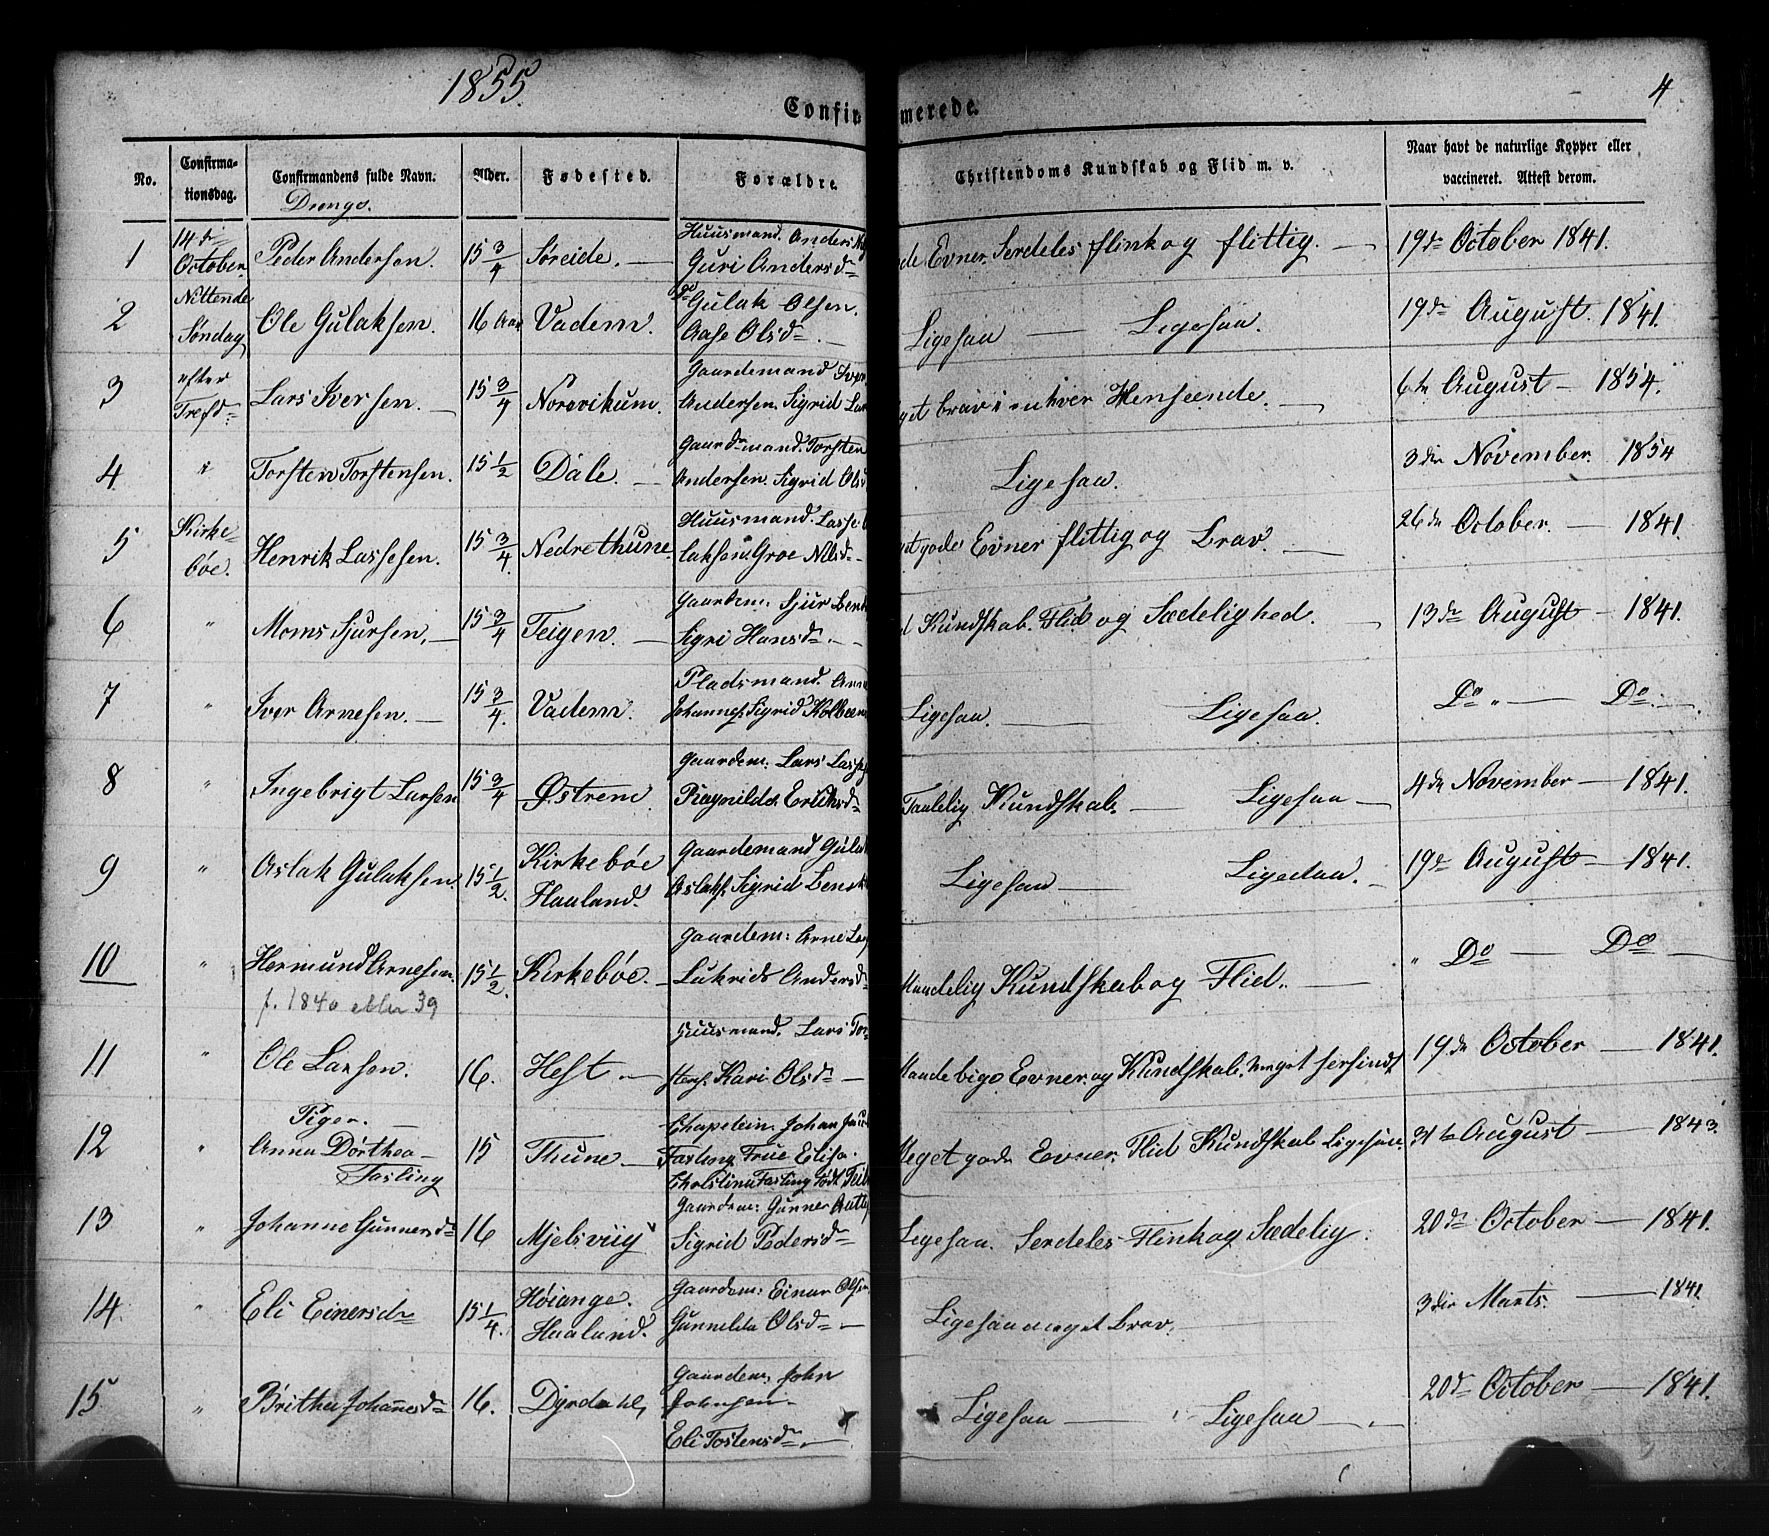 1855.
4
Confir merede.
No.
Confirma-
tionsdag.
Confirmandens fulde Navn.
Drenge.
Alder.
Fødested.
Forældre.
Christendoms Kundskab og Flid m. v.
Naar havt de naturlige Kopper eller
vaccineret. Attest derom.
1 14de October Peder Andersen. 15 3/4 Søreide. — Huusmand. Anders
Guri Andersd. de Evner. Serdeles flink og flittig. — 19de October 1841.
2 Nittende Søndag Ole Gulaksen. 16 Aar Vadem. Do Gulak Olsen.
Aase Olsd. — Ligesaa — Ligesaa. 19de August. 1841.
3 efter Trefd. Lars Iversen. — 15 3/4 Norevikum. Gaardemand Iver
Andersen. Sigrid Lar get brav i enhver Henseende. — 6te August — 1854.
4 " Torsten Torstensen. 15 1/2 Dale. — Gaardmand. Torsten
Andersen. Sigrid Olsd Ligesaa. 3die November. 1854
5 Kirke-
bøe. Henrik Lassesen. 15 3/4. Nedrethune. Huusmand. Lasse
laksen. Groe Nilsd. get gode Evner flittig og brav. — 26de October. — 1841.
6 " Moms Sjursen. — 15 3/4 Teigen. — Gaardem: Sjur Bend
Sigri Hansd. — d Kundskab. Flid og Sædelighed. — 13de August — 1841.
7 " Iver Arnesen. — 15 3/4. Vadem. Pladsmand. Arne
Johannes. Sigrid Kolbeens Ligesaa. — Ligesaa. Do " — Do. —
8 " Ingebrigt Larsen 15 3/4 Østrem. Gaardem: Lars Lasses
Ragnilde Eriksd. Taalelig Kundskab. — Ligesaa — 4de November — 1841.
9 " Aslak Gulaksen. 15 1/2. Kirkebøe
Haaland. Gaardemand Gula
Aslaks. Sigrid Bend Ligesaa — Ligesaa. — 19de August — 1841.
10 " Hermund Arnesen. 15 1/2. Kirkebøe. — Gaardem: Arne Las
Lukrids Andersd. Maadelig Kundskab og Flid. — " Do — Do —
f. 1840 eller 39
11 " Ole Larsen. 16. Heft. — Huusmand. Lars Tor-
stens. Kari Olsd. — Kundskab. meget 19de October — 1841.
Piger. —
12 " Anna Dorthea
Fasling 15 Thune — Chapelein. Johan
Fasling Frue Elisa.
Christina Fasling født Meget gode Evner. Flid Kundskab Ligesaa. 31te August — 1843.
13 " Johanne Gunnersd. 16 Mjelsviig Gaardem: Gunner
Sigrid Pedersd. Ligesaa. Serdeles Flink og Sædelig. 20de October — 1841.
14 " Eli Einersd. 15 1/4. Høiange.
Haaland. Gaardem: Einar Olsen.
Gunnilda Olsd. — Ligesaa meget brav. 3die Marts. — 1841
15 " Brithe Johannesd. 16. Dyrdahl, Gaardem: John
Johnsen.
Eli Tostensd. — Ligesaa — Ligesaa — 20de October — 1841.